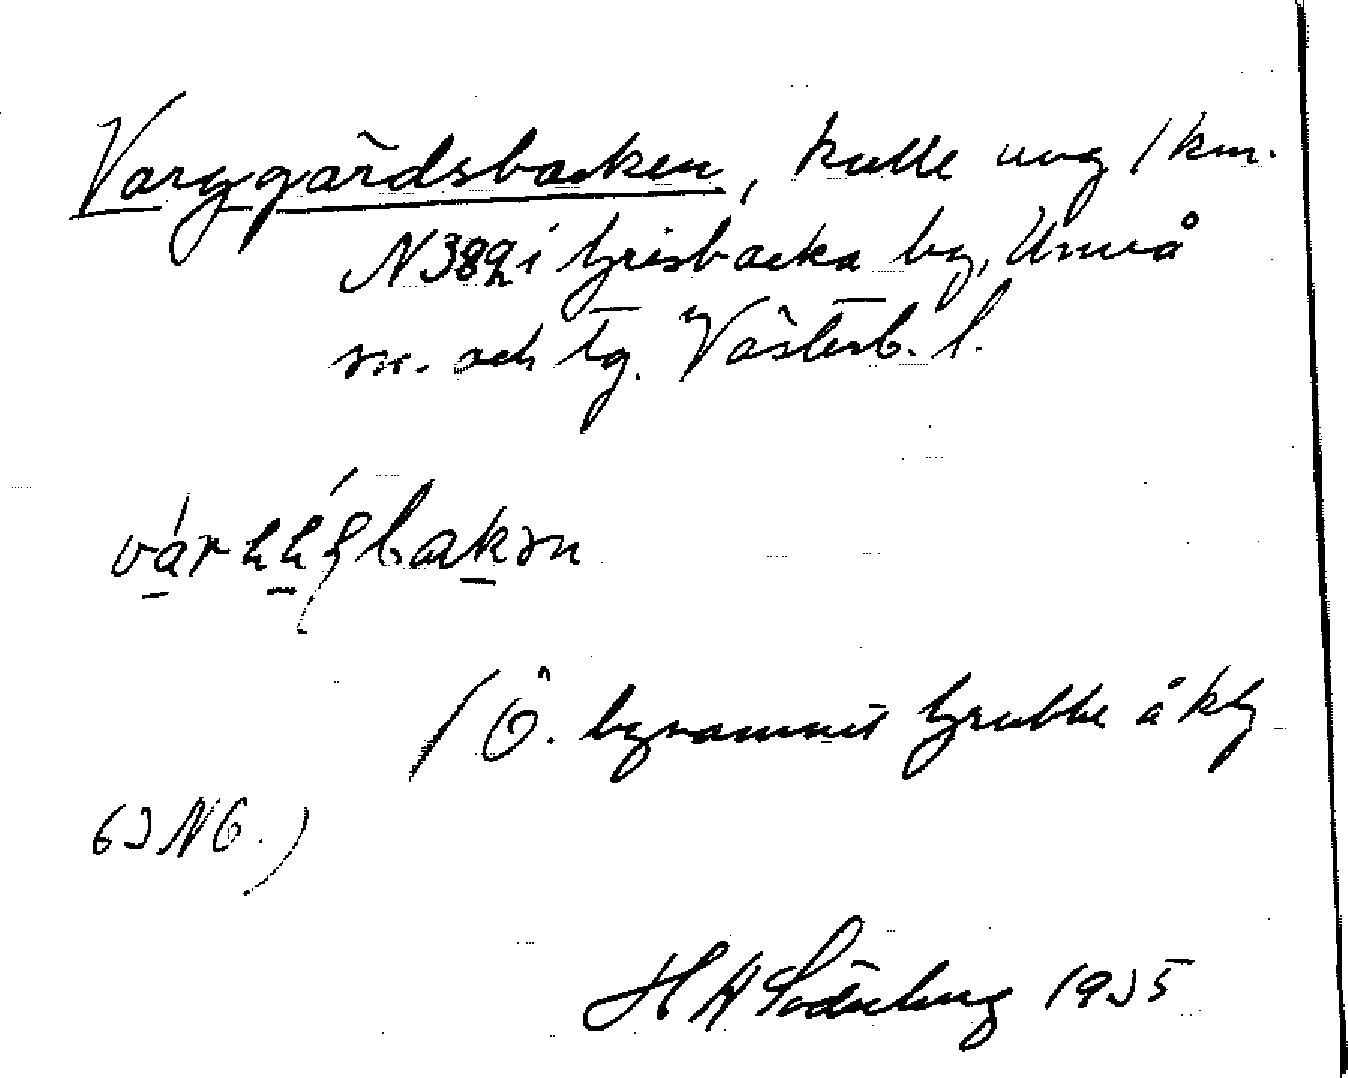 Varggärdsbacken, kulle ung 1 km.
N 38q i Grisbacka by, Umeå
sn. och tg. Västerb. l.
(Ö. byanamnet Grubbe å kbl
63 NÖ.)
H W Söderberg 1935